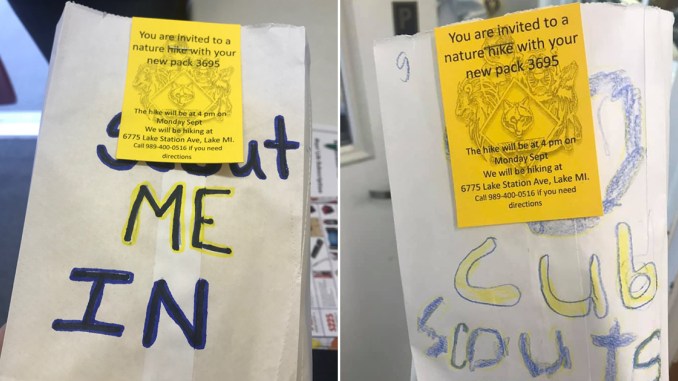 You are invited to a
nature hike with your
new pack 3695
The hike will be at 4 pm on
Monday Sept
We will be hiking at
6775 Lake Station Ave, Lake MI.
Call 989-400-0516 if you need
directions
Scout
ME
IN
$225
You are invited to a
nature hike with your
new pack 3695
The hike will be at 4 pm on
Monday Sept
We will be hiking at
6775 Lake Station Ave, Lake MI.
Call 989-400-0516 if you need
directions
Cub
Scouts
P